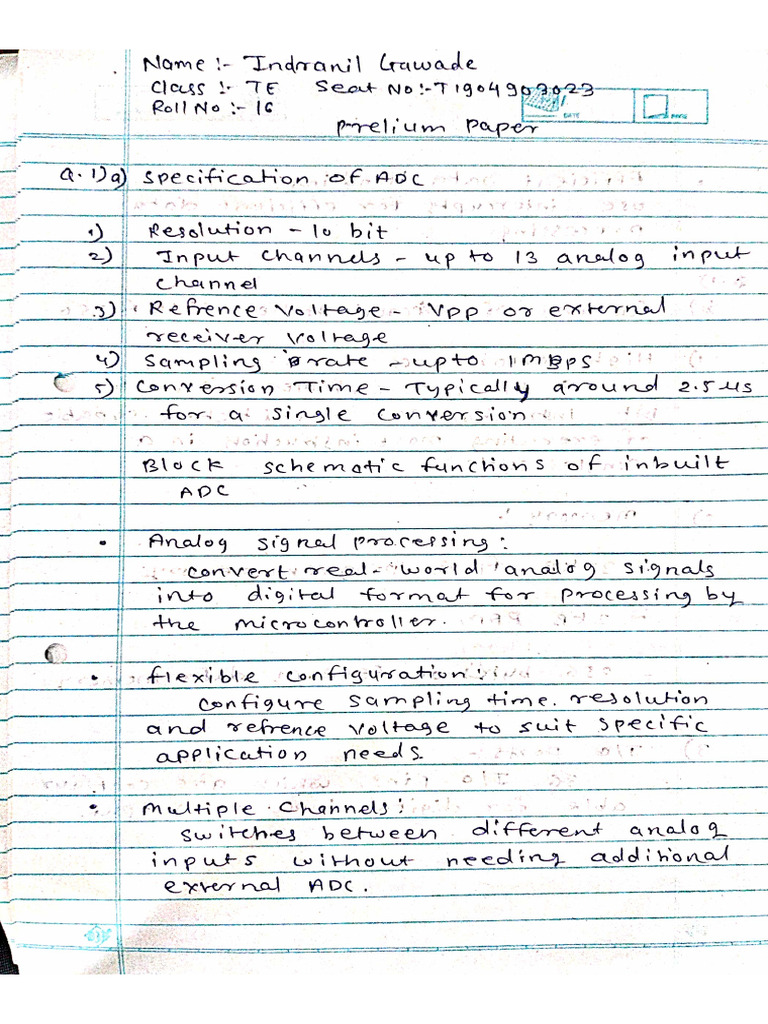 Name :- Indranil Gawade
Class :- TE Seat No :- T1904903023
Roll No :- 16
DATE
PAGE
Prelium Paper
Q. 1) a) Specification of ADC
1) Resolution - 10 bit
2) Input Channels - up to 13 analog input
channel
3) Refrence Voltage - VPP or external
receiver voltage
4) Sampling rate - upto 1 MBPS
5) Conversion Time - Typically around 2.5 µs
for a single conversion
Block schematic functions of inbuilt
ADC
• Analog signal processing :
convert real-world analog signals
into digital format for processing by
the microcontroller.
• flexible configuration :
configure sampling time. resolution
and refrence voltage to suit specific
application needs
• Multiple Channels :
switches between different analog
inputs without needing additional
external ADC.